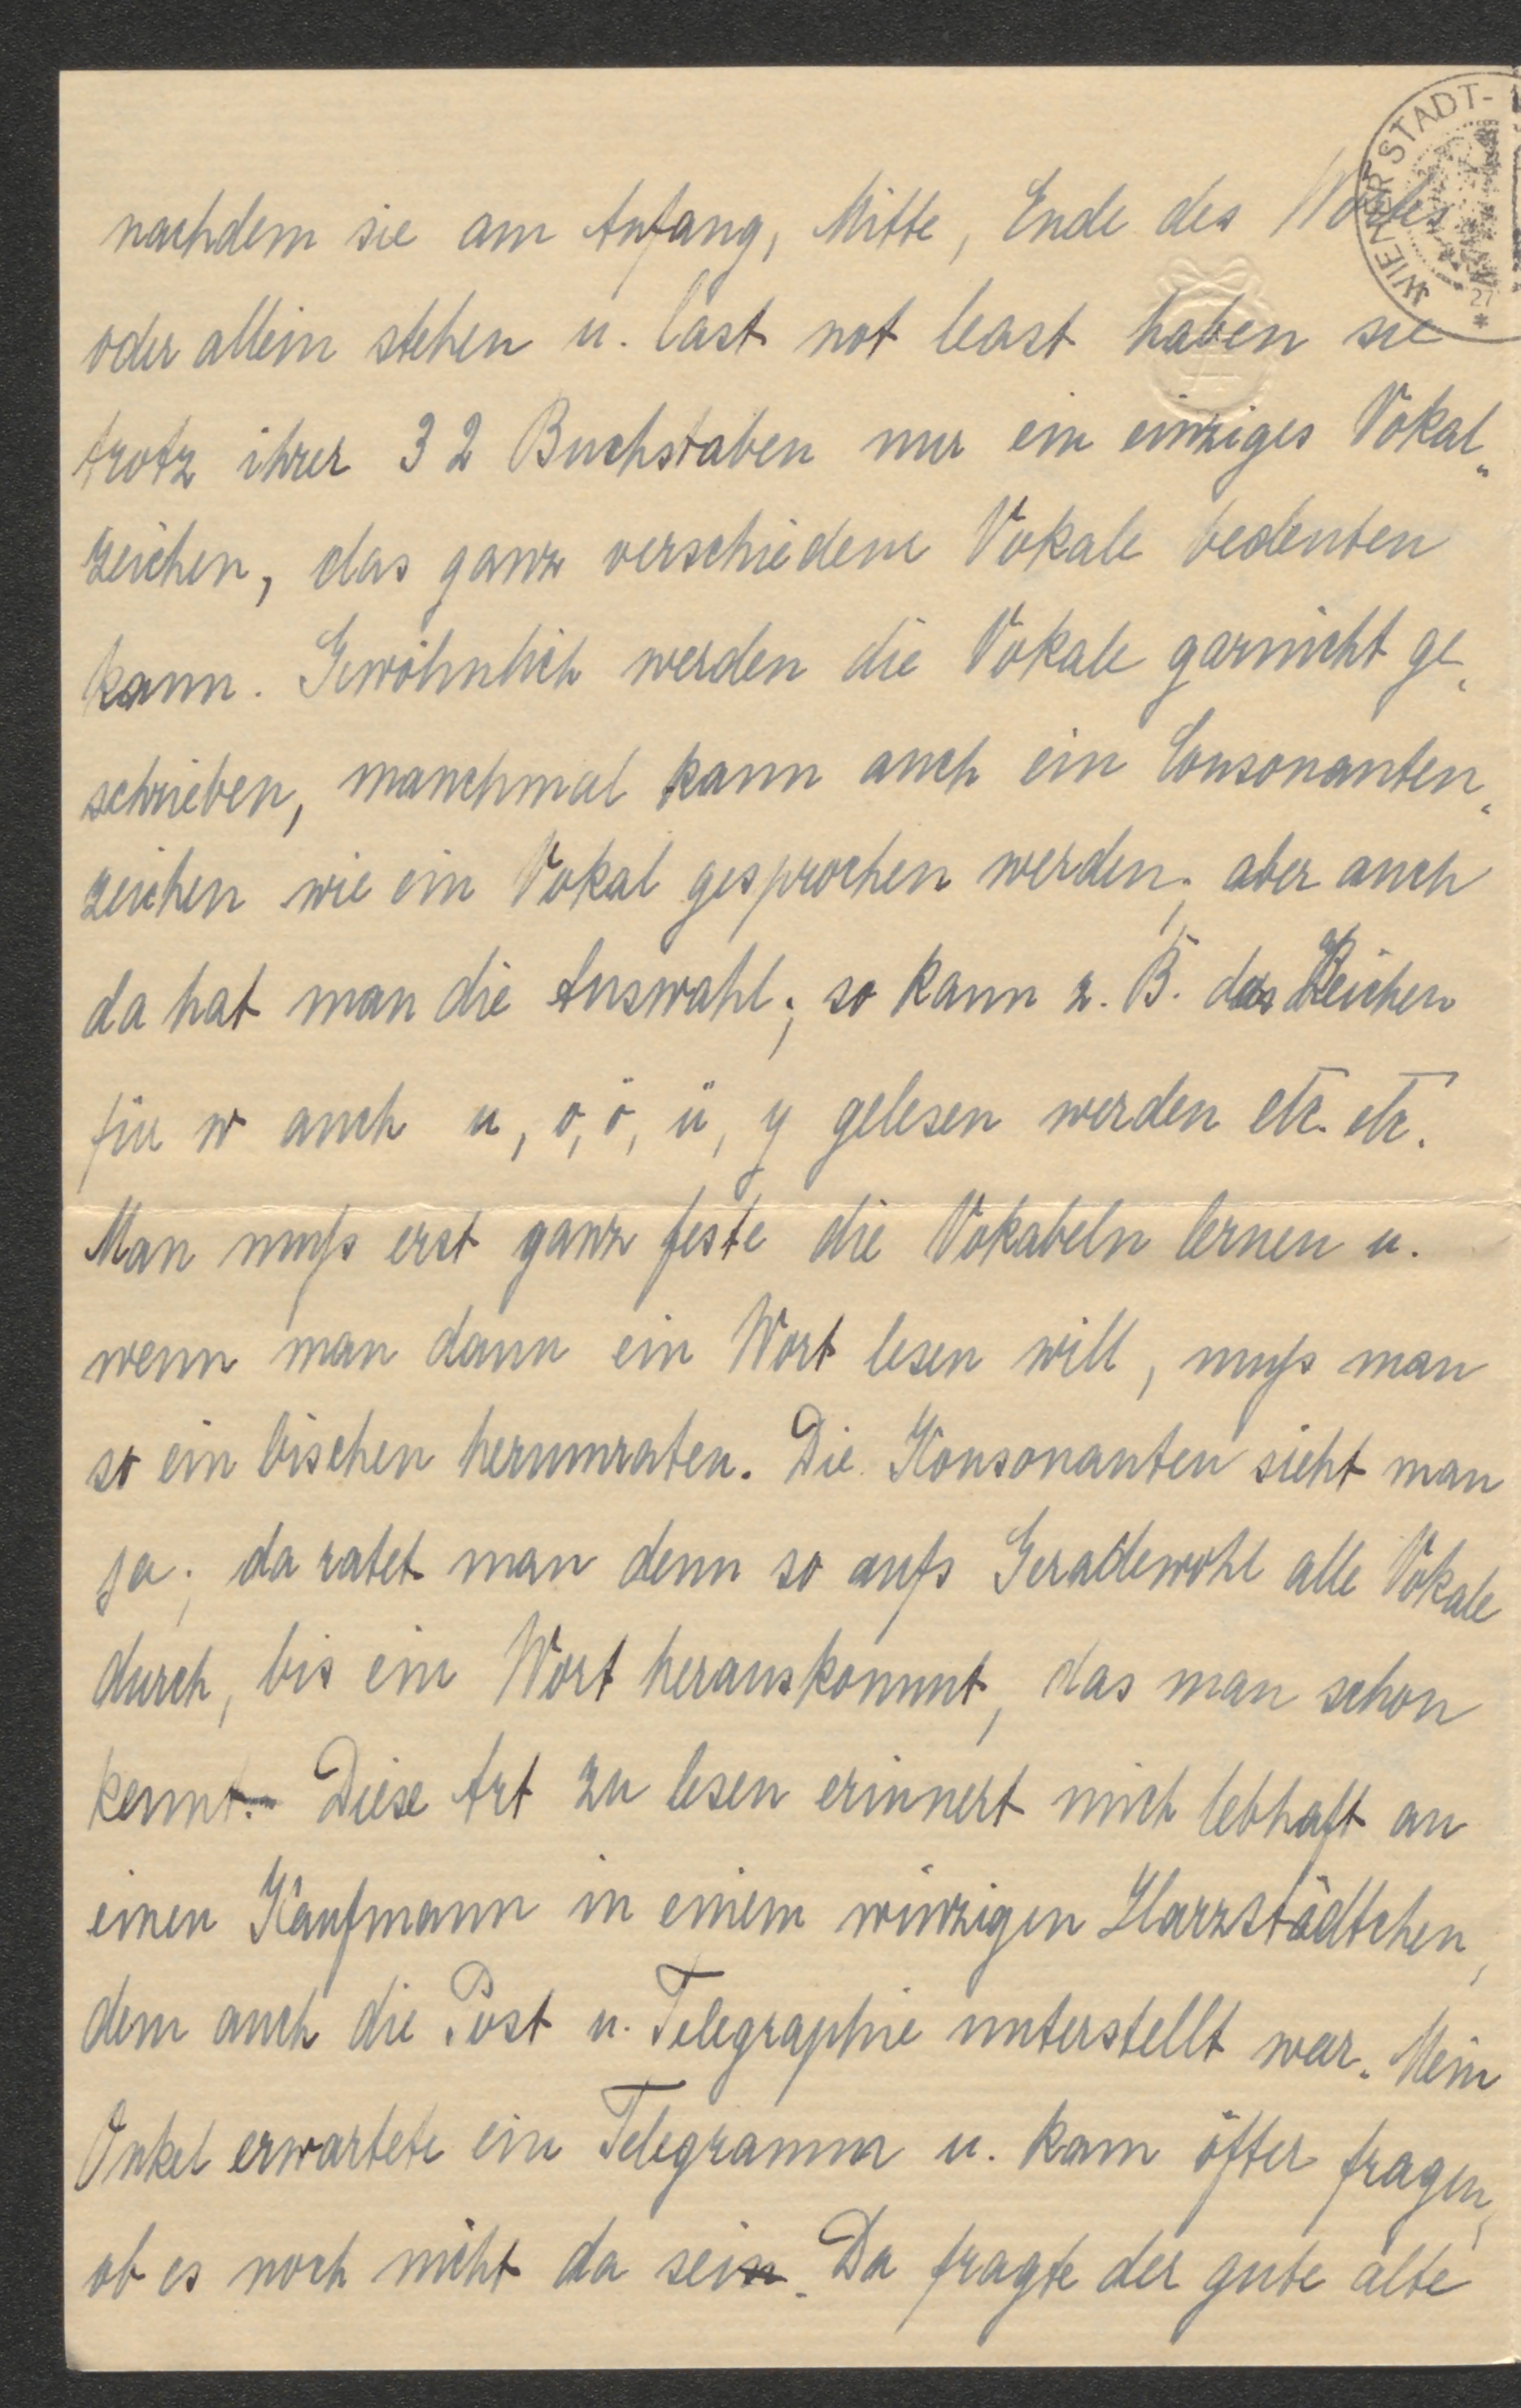 WIENER STADT-
27
*
nachdem sie am Anfang, Mitte, Ende des Wortes
oder allein stehen u. last not least haben sie
trotz ihrer 32 Buchstaben nur ein einziges Vokal„
zeichen, das ganz verschiedene Vokale bedeuten
kann. Gewöhnlich werden die Vokale garnicht ge„
schrieben, manchmal kann auch ein Consonanten„
zeichen wie ein Vokal gesprochen werden; aber auch
da hat man die Auswahl; so kann z. B. das Zeichen
für w auch u, o, ö, ü, y gelesen werden etc. etc.
Man muß erst ganz feste die Vokabeln lernen u.
wenn man dann ein Wort lesen will, muß man
so ein bischen herumraten. Die Konsonanten sieht man
ja; da ratet man denn so aufs Geradewohl alle Vokale
durch, bis ein Wort herauskommt, das man schon
kennt. Diese Art zu lesen erinnert mich lebhaft an
einen Kaufmann in einem winzigen Harzstädtchen,
dem auch die Post u. Telegraphie unterstellt war. Mein
Onkel erwartete ein Telegramm u. kam öfter fragen,
ob es noch nicht da sei. Da fragte der gute alte